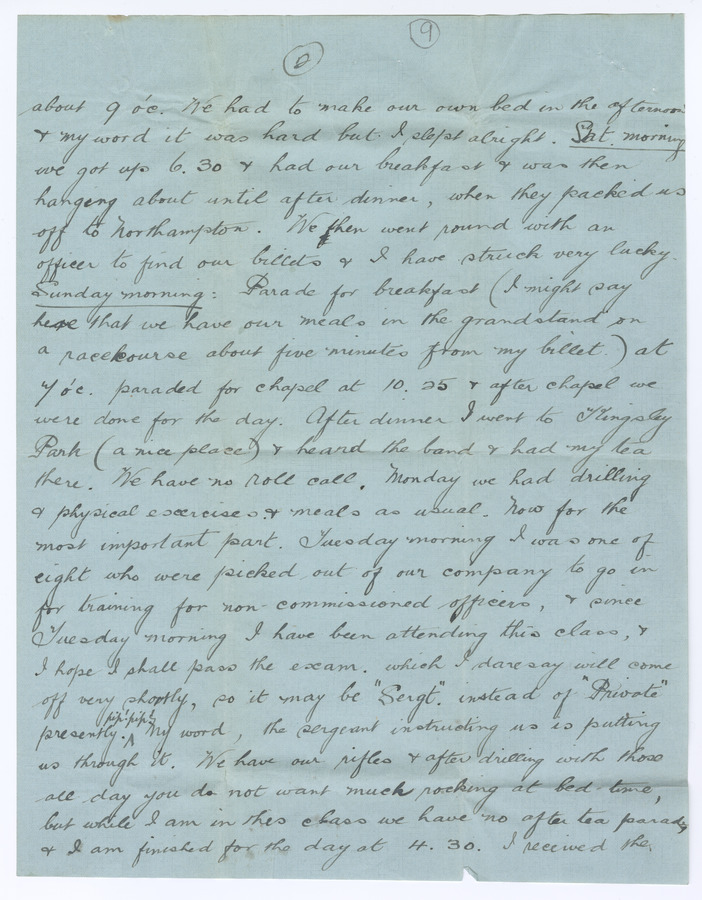 2 9
about 9 o'c. We had to make our own bed in the afternoon
& my word it was hard but I slept alright. Sat. morning
we got up 6.30 & had our breakfast & was then
hanging about until after dinner, when they packed us
off to Northampton. We then went round with an
officer to find our billets & I have struck very lucky.
Sunday morning: Parade for breakfast (I might say
here that we have our meals in the grandstand on
a racecourse about five minutes from my billet.) at
7 o'c. paraded for chapel at 10.25 & after chapel we
were done for the day. After dinner I went to Kingsley
Park (a nice place) & heard the band & had my tea
there. We have no roll call. Monday we had drilling
& physical excercises & meals as usual. Now for the
most important part. Tuesday morning I was one of
eight who were picked out of our company to go in
for training for non-commissioned officers, & since
Tuesday morning I have been attending this class, &
I hope I shall pass the exam. which I daresay will come
off very shortly, so it may be "Sergt". instead of "Private"
presently. "pip! pip!" My word, the sergeant instructing us is putting
us through it. We have our rifles & after drilling with those
all day you do not want much rocking at bed-time,
but while I am in this class we have no after tea parade
& I am finished for the day at 4.30. I received the